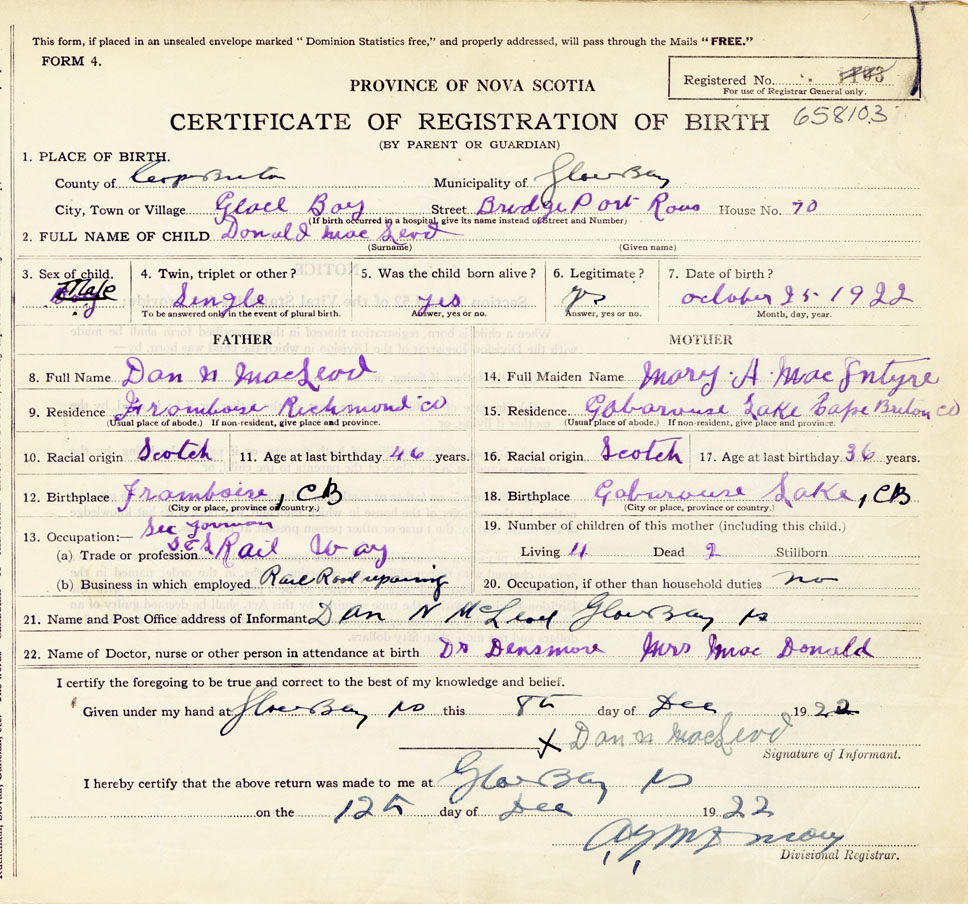 This form, if placed in an unsealed envelope marked "Dominion Statistics free," and properly addressed, will pass through the Mails "FREE."
FORM 4.
PROVINCE OF NOVA SCOTIA
Registered No. 1103
For use of Registrar General only.
CERTIFICATE OF REGISTRATION OF BIRTH 658103
(BY PARENT OR GUARDIAN)
1. PLACE OF BIRTH.
County of Cape Breton Municipality of Glace Bay
City, Town or Village Glace Bay Street Bridge Port Rows House No. 70
(If birth occurred in a hospital, give its name instead of Street and Number)
2. FULL NAME OF CHILD Donald Mac Leod
(Surname) (Given name)
3. Sex of child. 4. Twin, triplet or other? 5. Was the child born alive? 6. Legitimate? 7. Date of birth?
Boy Male Single yes yes October 25 1922
To be answered only in the event of plural birth. Answer, yes or no. Answer, yes or no. Month, day, year.
FATHER MOTHER
8. Full Name Dan N MacLeod 14. Full Maiden Name Mary A MacIntyre
9. Residence Framboise Richmond co 15. Residence Gabarouse Lake Cape Breton co
(Usual place of abode.) If non-resident, give place and province. (Usual place of abode.) If non-resident, give place and province.
10. Racial origin Scotch 11. Age at last birthday 46 years. 16. Racial origin Scotch 17. Age at last birthday 36 years.
12. Birthplace Framboise, CB 18. Birthplace Gabarouse Lake, CB
(City or place, province or country.) (City or place, province or country.)
13. Occupation:— Sec Forman 19. Number of children of this mother (including this child.)
(a) Trade or profession S & L Rail Way Living 4 Dead 2 Stillborn
(b) Business in which employed Rail Road repairing 20. Occupation, if other than household duties no
21. Name and Post Office address of Informant Dan N McLeod Glace Bay NS
22. Name of Doctor, nurse or other person in attendance at birth Dr Densmore Mrs Mac Donald
I certify the foregoing to be true and correct to the best of my knowledge and belief.
Given under my hand at Glace Bay NS this 8th day of Dec 1922
X Dan N MacLeod
Signature of Informant.
I hereby certify that the above return was made to me at Glace Bay NS
on the 12th day of Dec 1922
Divisional Registrar.